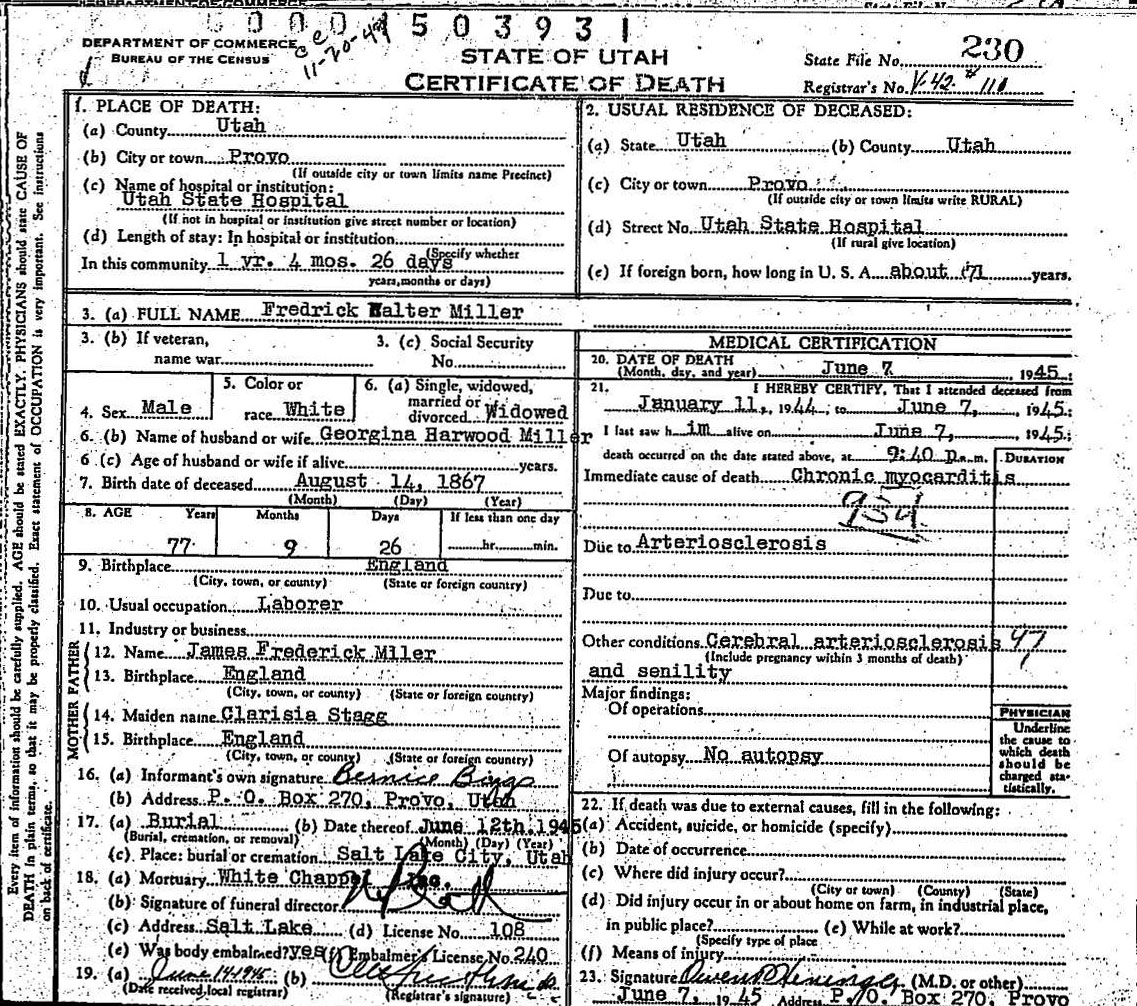 0001503931
DEPARTMENT OF COMMERCE
BUREAU OF THE CENSUS
11-20-47
STATE OF UTAH
CERTIFICATE OF DEATH
State File No. 230
Registrar's No. V-42 # 110
1. PLACE OF DEATH:
(a) County Utah
(b) City or town Provo
(If outside city or town limits name Precinct)
(c) Name of hospital or institution:
Utah State Hospital
(If not in hospital or institution give street number or location)
(d) Length of stay: In hospital or institution
(Specify whether
In this community 1 yr. 4 mos. 26 days
years, months or days)
2. USUAL RESIDENCE OF DECEASED:
(a) State Utah (b) County Utah
(c) City or town Provo
(If outside city or town limits write RURAL)
(d) Street No. Utah State Hospital
(If rural give location)
(e) If foreign born, how long in U. S. A. about 71 years.
3. (a) FULL NAME Fredrick Walter Miller
3. (b) If veteran,
name war
3. (c) Social Security
No.
5. Color or
4. Sex Male race White
6. (a) Single, widowed,
married or
divorced Widowed
6. (b) Name of husband or wife Georgina Harwood Miller
6 (c) Age of husband or wife if alive years.
7. Birth date of deceased August 14, 1867
(Month) (Day) (Year)
8. AGE Years Months Days If less than one day
77 9 26 hr. min.
9. Birthplace England
(City, town, or county) (State or foreign country)
10. Usual occupation Laborer
11. Industry or business
FATHER
12. Name James Frederick Mller
13. Birthplace England
(City, town, or county) (State or foreign country)
MOTHER
14. Maiden name Clarisia Stagg
15. Birthplace England
(City, town, or county) (State or foreign country)
16. (a) Informant's own signature Bernice Biggs
(b) Address P. O. Box 270, Provo, Utah
17. (a) Burial (b) Date thereof June 12th. 1945
(Burial, cremation, or removal) (Month) (Day) (Year)
(c) Place: burial or cremation Salt Lake City, Utah
18. (a) Mortuary White Chappel Inc.
(b) Signature of funeral director
(c) Address Salt Lake (d) License No. 108
(e) Was body embalmed? yes (f) Embalmer's License No. 240
19. (a) June 14 1945 (b)
(Date received local registrar) (Registrar's signature)
MEDICAL CERTIFICATION
20. DATE OF DEATH
(Month, day, and year) June 7 1945
21. I HEREBY CERTIFY, That I attended deceased from
January 11, 1944, to June 7, 1945
I last saw h im alive on June 7, 1945
death occurred on the date stated above, at 9:40 p. m.
DURATION
Immediate cause of death Chronic myocarditis
Due to Arteriosclerosis
Due to
Other conditions Cerebral arteriosclerosis 97
(Include pregnancy within 3 months of death)
and senility
Major findings:
Of operations
Of autopsy No autopsy
PHYSICIAN
Underline
the cause to
which death
should be
charged sta-
tistically.
22. If death was due to external causes, fill in the following:
(a) Accident, suicide, or homicide (specify)
(b) Date of occurrence
(c) Where did injury occur?
(City or town) (County) (State)
(d) Did injury occur in or about home on farm, in industrial place,
in public place? (e) While at work?
(Specify type of place
(f) Means of injury
23. Signature Owen Heninger (M.D. or other)
June 7, 1945 Address P. O. Box 270, Provo
Every item of information should be carefully supplied. AGE should be stated EXACTLY. PHYSICIANS should state CAUSE OF
DEATH in plain terms, so that it may be properly classified. Exact statement of OCCUPATION is very important. See instructions
on back of certificate.